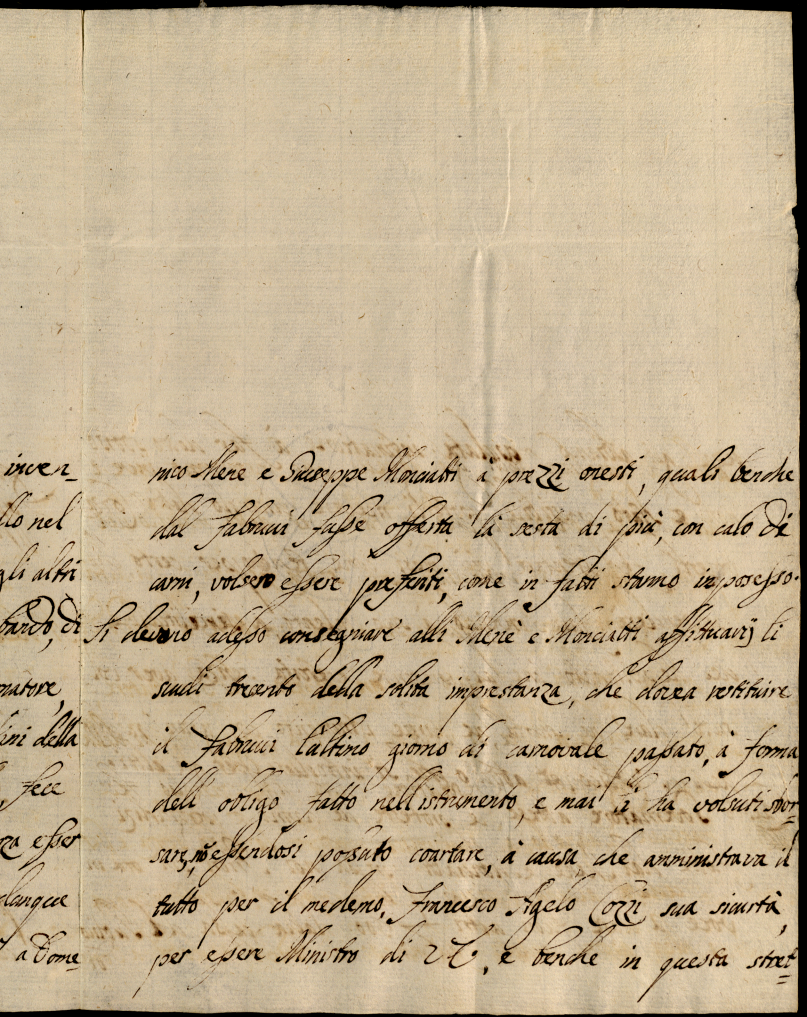 inven=
llo nel
gli altri
bando, di
natore,
ini della
fece
za esser
dunque
a Dome=
nico Mene e Giuseppe Monciatti à prezzi onesti, quali benche
dal Fabrucci fusse offerta la sesta di più, con calo di
carni, volsero essere preferiti, come in fatti stanno in possesso.
Si devono adesso consegniare alli Menè e Monciatti affittuarij li
scudi trecento della solita imprestanza, che dovea restituire
il Fabrucci l'ultimo giorno di carnovale passato, à forma
dell obligo fatto nell istrumento, e mai li ha volsuti sbor=
sare, nõ essendosi possuto coartare, à causa che amministrava il
tutto per il medemo, Francesco Agelo Cozzi sua sicurtà,
per essere Ministro di e benche in questa stret=